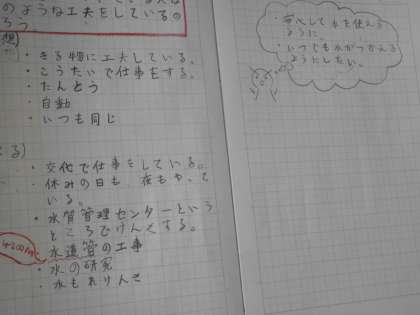 のような工夫をしているの
想)
・きる物に工夫している。
・こうたいで仕事をする。
・たんとう
・自動
・いつも同じ
・交代で仕事をしている。
・休みの日も、夜もやって
いる。
・水質管理センターという
ところでけんさする。
・水道管の工事
・水の研究
・安心して水を使える
ように。
・いつでも水がつかえる
ようにしたい。